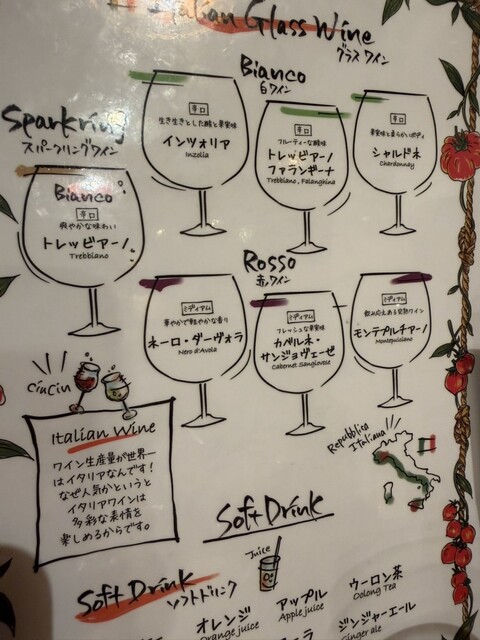 Italian Glass Wine
グラスワイン
Bianco
白ワイン
辛口
生き生きとした酸と果実味
インツォリア
Inzolia
辛口
フルーティーな酸味
トレッビアーノ
ファランギーナ
Trebbiano, Falanghina
辛口
果実味と柔らかいボディ
シャルドネ
Chardonnay
Sparkring
スパークリングワイン
Bianco
辛口
爽やかな味わい
トレッビアーノ
Trebbiano
Rosso
赤ワイン
ミディアム
華やかで軽やかな香り
ネーロ・ダーヴォラ
Nero d'Avola
ミディアム
フレッシュな果実味
カベルネ・
サンジョヴェーゼ
Cabernet Sangiovese
ミディアム
飲み応えある定熟ワイン
モンテプルチアーノ
Montepulciano
CinCin
Italian Wine
ワイン生産量が世界一
はイタリアなんです!
なぜ人気かというと
イタリアワインは
多彩な表情を
楽しめるからです。
Repubblica
Italiana
Soft Drink
Juice
Soft Drink
ソフトドリンク
オレンジ
Orange juice
アップル
Apple juice
ウーロン茶
Oolong Tea
ジンジャーエール
Ginger ale